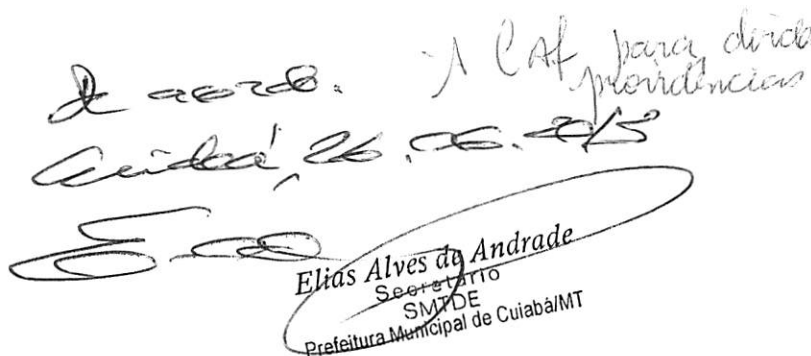 De acordo.
À CAF para devida
providências
Cuiabá, 26.06.2015
Elias Alves de Andrade
Secretário
SMTDE
Prefeitura Municipal de Cuiabá/MT